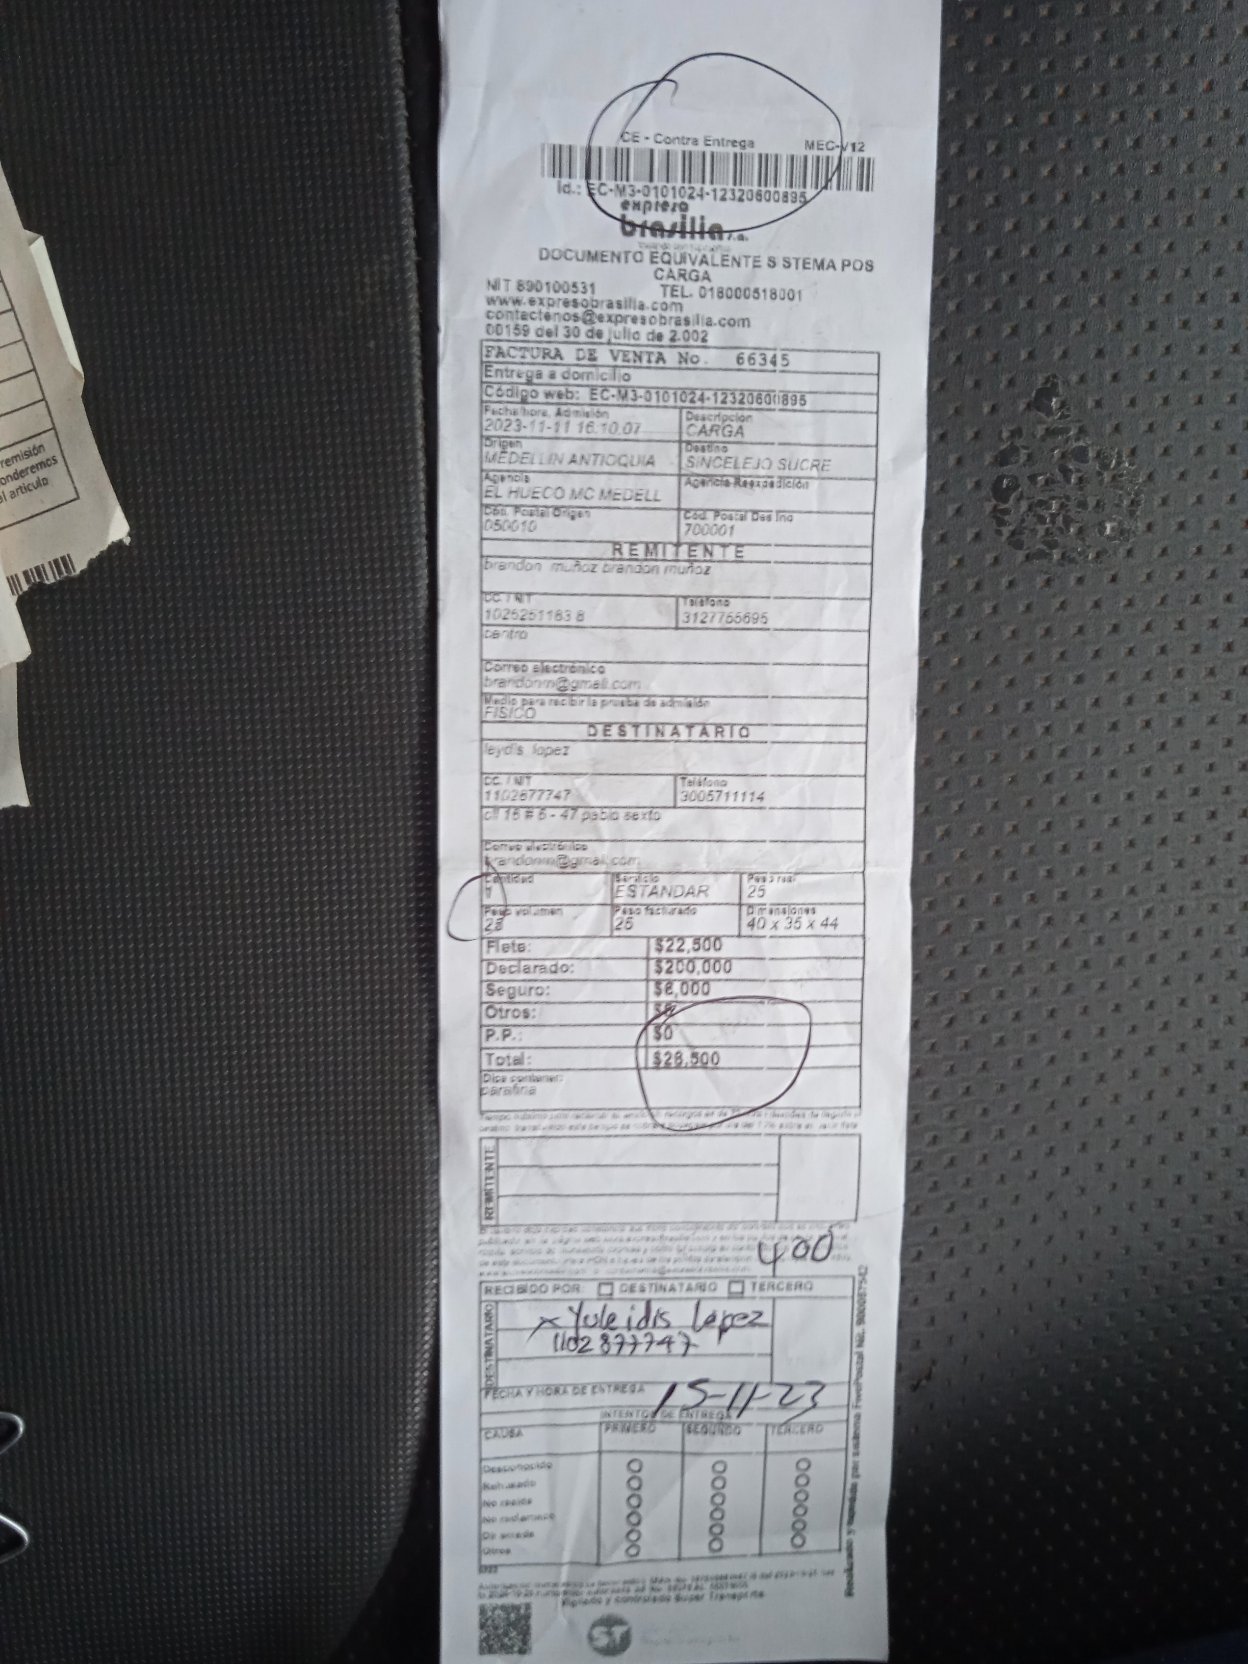 CE - Contra Entrega MEC-V12
Id.: EC-M3-0101024-12320600895
expreso
brasilia s.a.
DOCUMENTO EQUIVALENTE S STEMA POS
CARGA
NIT 890100531 TEL. 018000518001
www.expresobrasilia.com
contactenos@expresobrasilia.com
00159 del 30 de julio de 2.002
FACTURA DE VENTA No. 66345
Entrega a domicilio
Código web: EC-M3-0101024-12320600895
Fecha/hora. Admisión Descripción
2023-11-11 16:10:07 CARGA
Origen Destino
MEDELLIN ANTIOQUIA SINCELEJO SUCRE
Agencia Agencia Reexpedición
EL HUECO MC MEDELL
Cód. Postal Origen Cód. Postal Destino
050010 700001
REMITENTE
brandon muñoz brandon muñoz
CC. / NIT Teléfono
1026251163 8 3127765695
centro
Correo electrónico
brandonm@gmail.com
Medio para recibir la prueba de admisión
FISICO
DESTINATARIO
leydis lopez
CC. / NIT Teléfono
1102877747 3005711114
cll 16 # 6 - 47 pablo sexto
Correo electrónico
brandonm@gmail.com
Cantidad Servicio Peso real
1 ESTANDAR 25
Peso volumen Peso facturado Dimensiones
25 40 x 35 x 44
Flete: $22,500
Declarado: $200,000
Seguro: $6,000
Otros:
P.P.: $0
Total: $28,500
Dice contener:
parafina
400
RECIBIDO POR: DESTINATARIO TERCERO
DESTINATARIO
x Yuleidis Lopez
1102877747
FECHA Y HORA DE ENTREGA 15-11-23
INTENTOS DE ENTREGA
CAUSA PRIMERO SEGUNDO TERCERO
Desconocido
Rehusado
No reside
No reclamado
Dir errada
Otros
Vigilado y controlado Super Transporte
ST
remisión
onderemos
al artículo